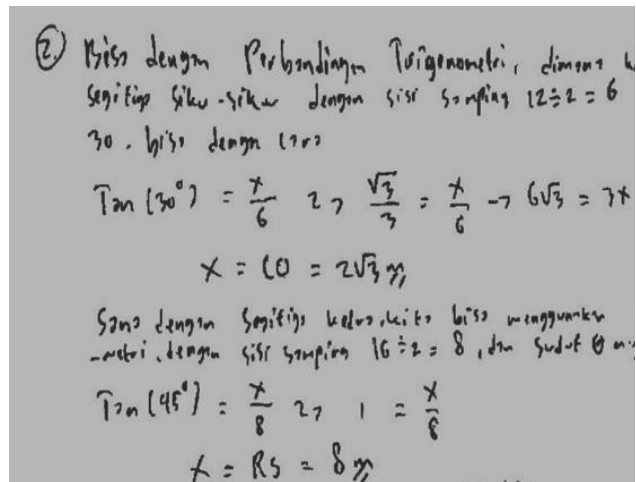 2. Bisa dengan Perbandingan Trigonometri, dimana
Segitiga siku-siku dengan sisi samping 12÷2 = 6
30. bisa dengan cara
Tan (30°) = x/6 => √3/3 = x/6 -> 6√3 = 3x
x = CO = 2√3 m
Sama dengan Segitiga kedua, kita bisa menggunakan
-metri, dengan sisi samping 16÷2 = 8, dan sudut θ
Tan (45°) = x/8 => 1 = x/8
x = RS = 8 m